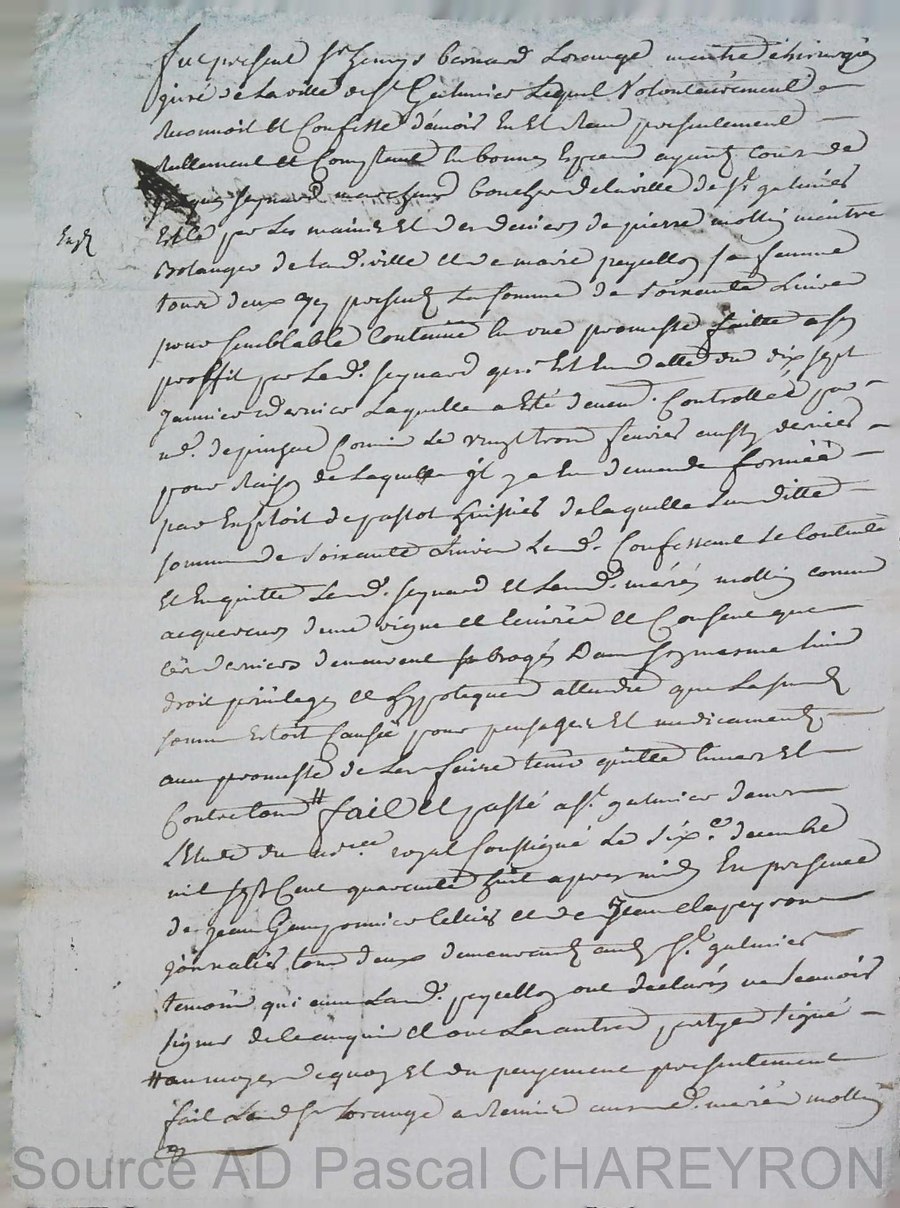 fut present Sr henrys bernard Lorange maitre chirurgien
juré de La ville de St Galmier Lequel Volontairement
Reconnoit et Confesse d'avoir Eu et Receu presentement
Reellement et Comptant en bonnes Especes ayant Cours de
seynard marchand boucher de la ville de St galmier
Exp
par Les mains Et des deniers de pierre mollin maitre
Bolanger de lad. ville et de marie peycellon sa femme
tous deux icy presents La somme de soixante Livres
pour semblable Contenue en une promesse faitte a son
proffit par Led. seynard qui Est en datte du dix sept
janvier dernier Laquelle a Eté Controllée par
Commis Le vingt trois fevrier aussy dernier
pour Raison de Laquelle il y a Eu demande formée
par Exploit de pastot huissier de laquelle susditte
somme de soixante Livres Led. Confessant se Contente
Et En quitte Led. seynard et Lesd. mariés mollin comme
acquereurs d'une vigne et et Consent que
ces derniers demeurent subrogés Dans son mesme Lieu
droit privilege et hypoteque attendu que La susd
somme Estoit Causée pour pensages Et medicaments
aux promesse de Les faire tenir quitte Envers Et
Contre tous # fait et passé a St galmier dans
L'Etude du no.re royal soussigné Le six.e decembre
mil sept Cent quarante huit apres midy En presence
de jean sellier et de Jean clapeyron
jornalier tous deux demeurants aud. St galmier
temoins qui avec Lad. peycellon ont declarés ne scavoir
signer de ce enquis et ont Les autres partyes signé
# au moyen de quoy Et du payement presentement
fait Led Sr Lorange a Remis auxd. mariés mollin
Source AD Pascal CHAREYRON